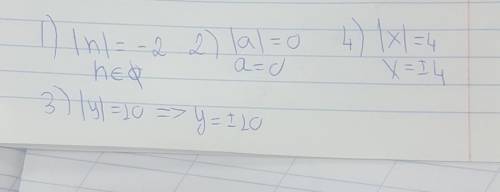 1) |n| = -2 2) |a|=0 4) |x|=4
n∈∅ a=0 x=±4
3) |y|=10 => y=±10